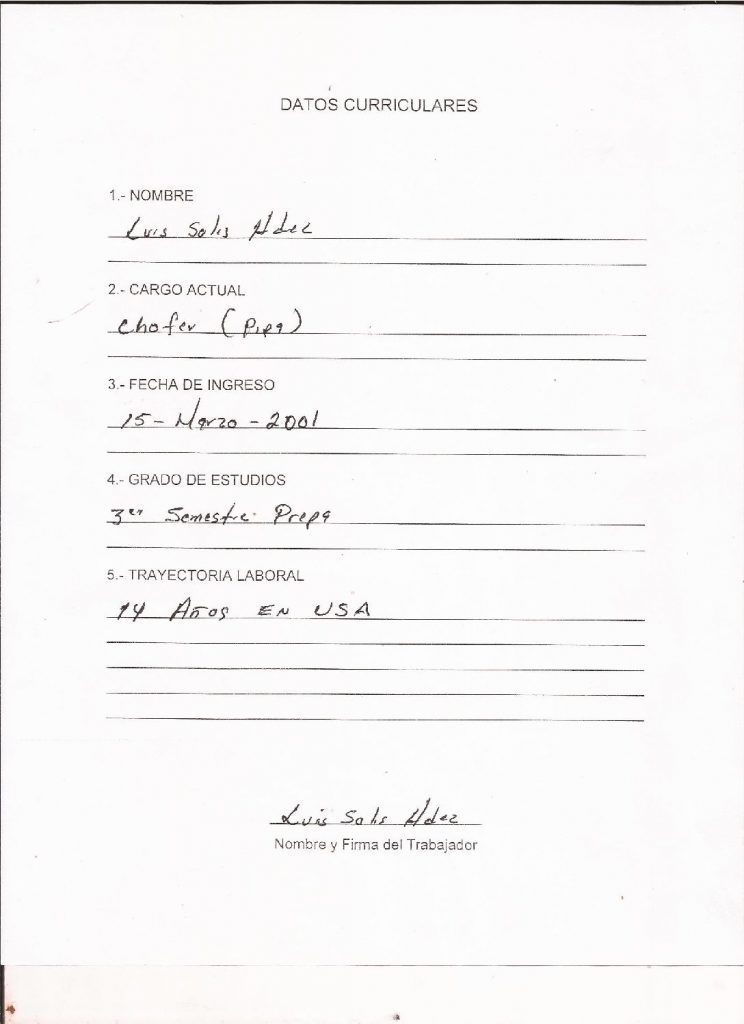 DATOS CURRICULARES
1.- NOMBRE
Luis Solis Hdez
2.- CARGO ACTUAL
Chofer (Pipa)
3.- FECHA DE INGRESO
15- Marzo - 2001
4.- GRADO DE ESTUDIOS
3er Semestre Prepa
5.- TRAYECTORIA LABORAL
14 Años EN USA
Luis Solis Hdez
Nombre y Firma del Trabajador